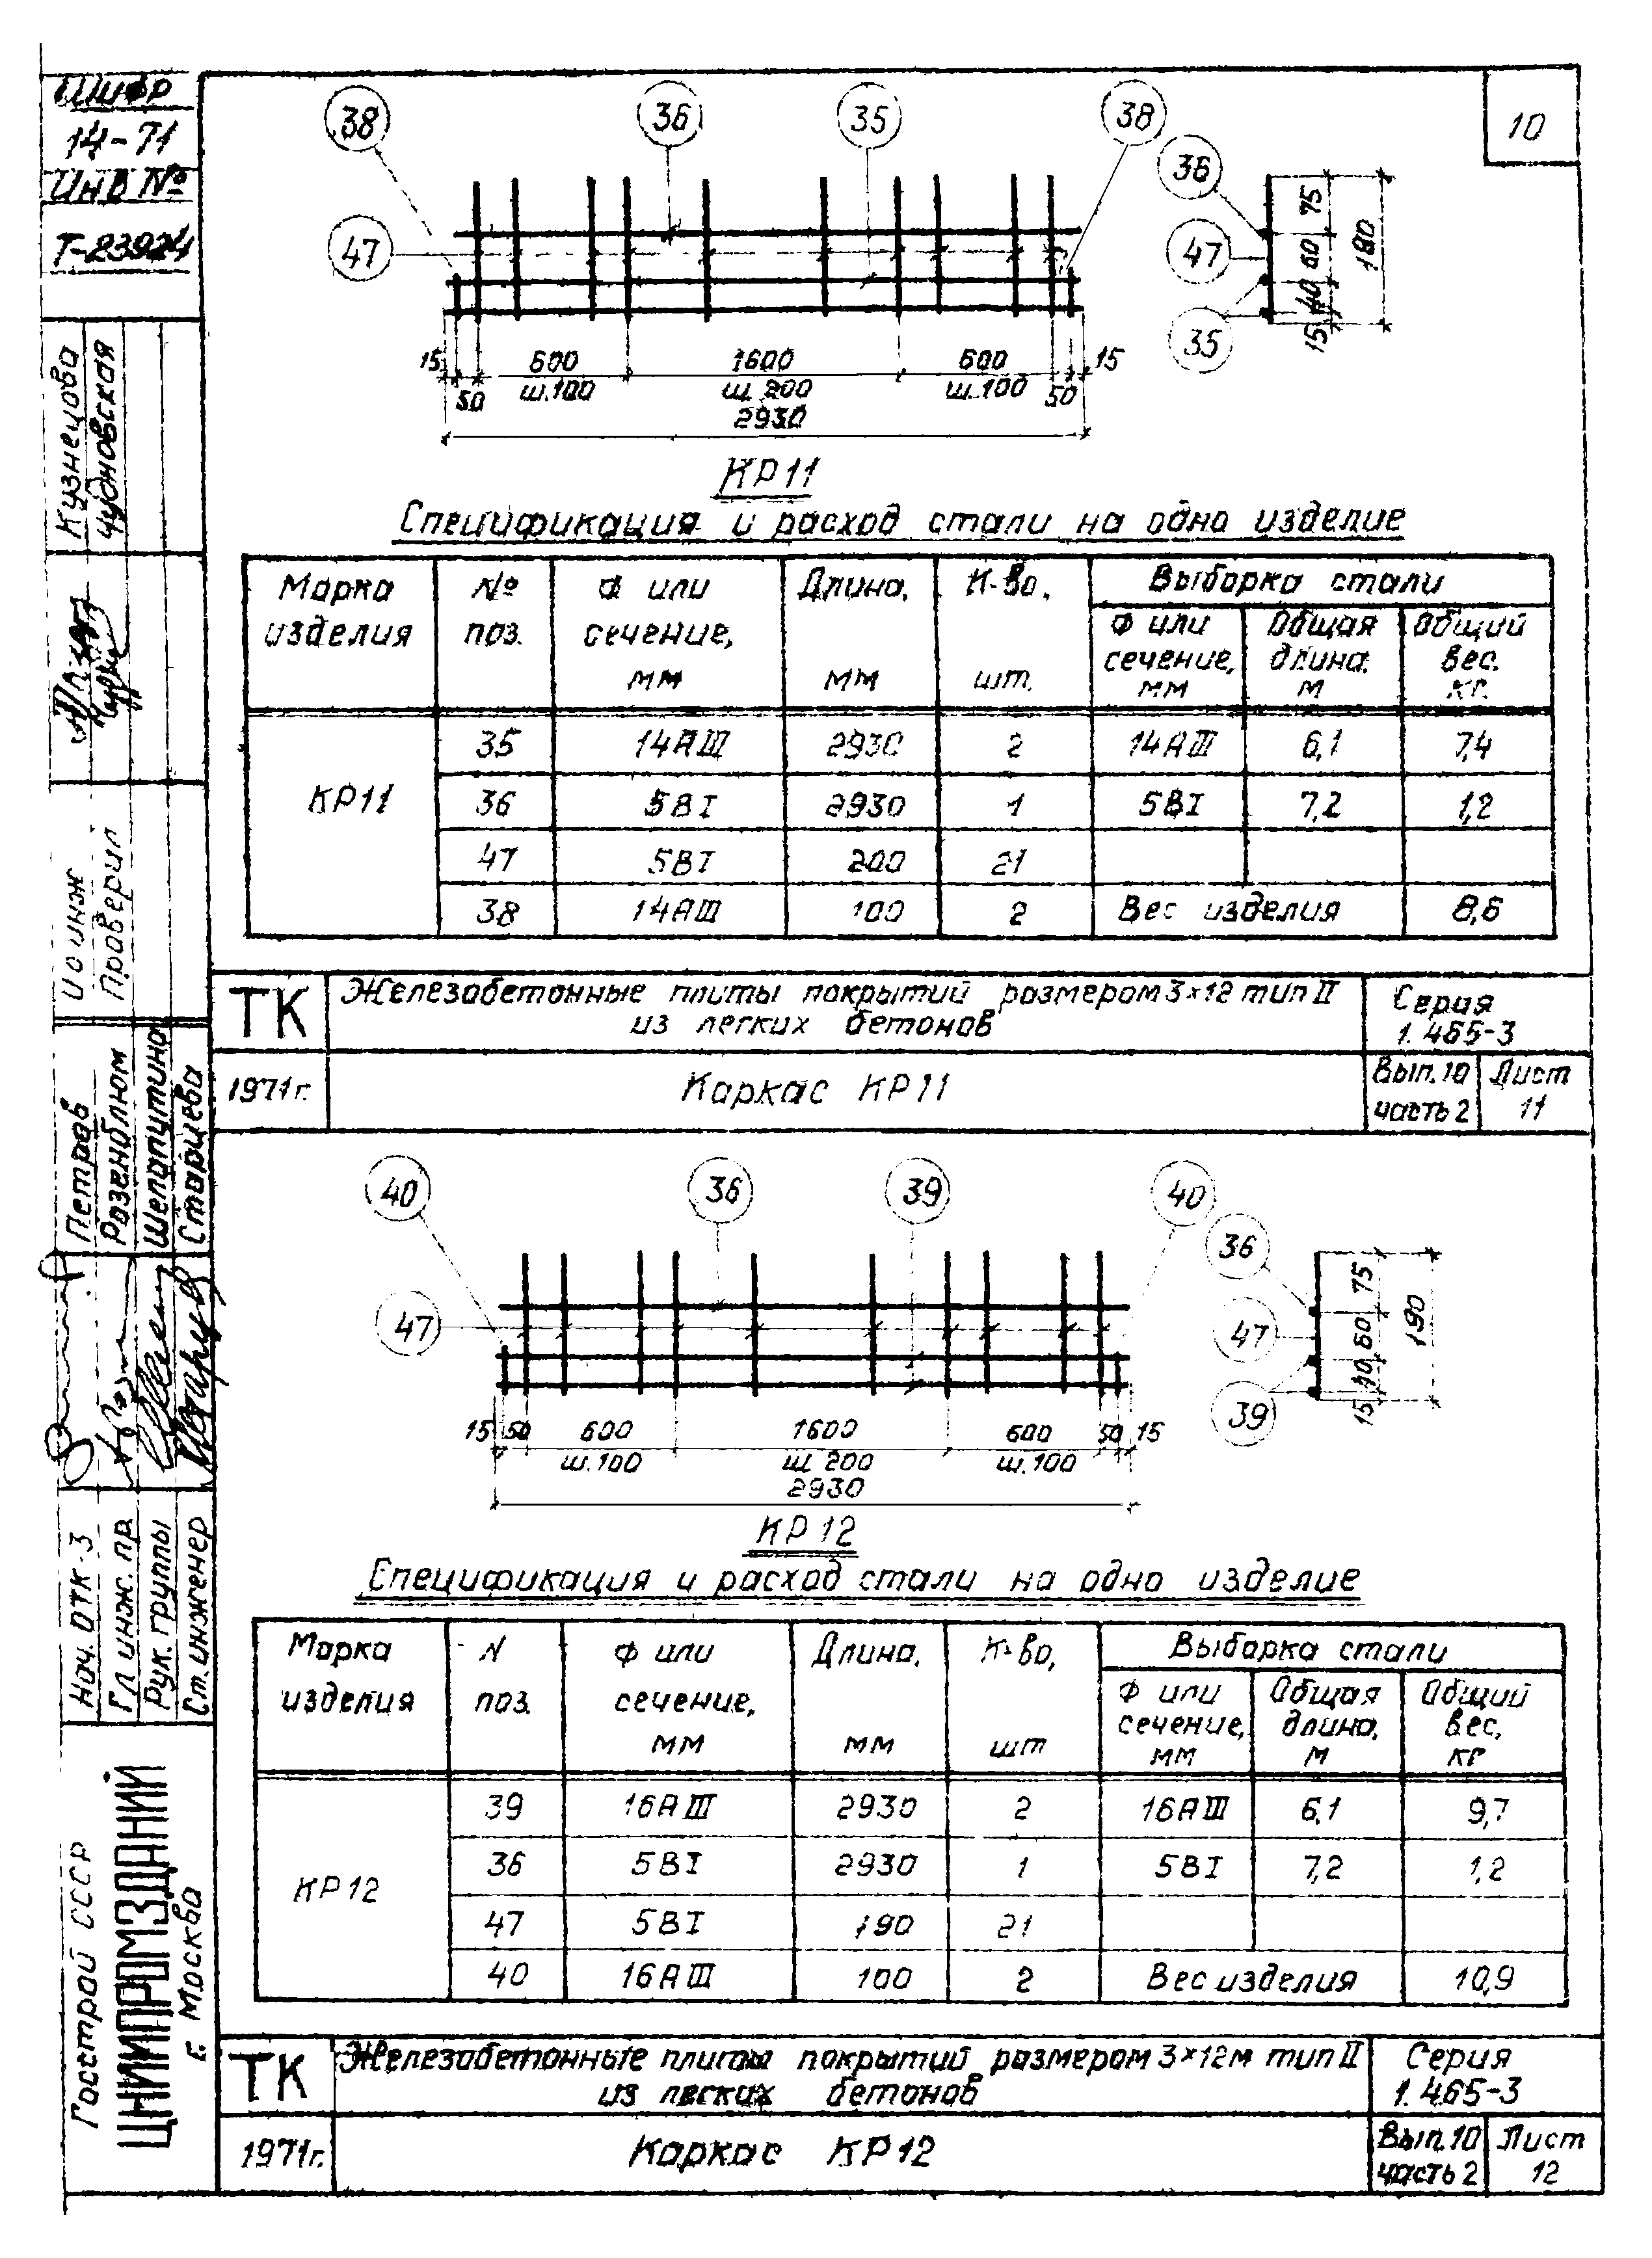 Шифр
14-71
Инв №
Т-23924
Кузнецова
Чудновская
Проверил
Петров
Розенблюм
Шелапутина
Старцева
Нач. ОТК-3
Гл инж. пр.
Рук. группы
Ст. инженер
Госстрой СССР
ЦНИИПРОМЗДАНИЙ
г. Москва
10
38 36 35 38
47
36
47
35
75
60
40
15
180
15 50 600 1600 600 50 15
ш.100 ш.200 ш.100
2930
КР11
Спецификация и расход стали на одно изделие
Марка изделия № поз. Ф или сечение, мм Длина, мм К-во, шт. Выборка стали
Ф или сечение, мм Общая длина. м Общий вес. кг.
КР11 35 14АIII 2930 2 14АIII 6,1 7,4
36 5ВI 2930 1 5ВI 7,2 1,2
47 5ВI 200 21
38 14АIII 100 2 Вес изделия 8,6
ТК Железобетонные плиты покрытий размером 3×12 тип II
из легких бетонов
Серия
1.465-3
1971г. Каркас КР11
Вып.10 Лист
часть 2 11
40 36 39 40
47
36
47
39
75
60
40
15
190
15 50 600 1600 600 50 15
ш.100 ш.200 ш.100
2930
КР12
Спецификация и расход стали на одно изделие
Марка изделия N поз. Ф или сечение, мм Длина, мм К-во, шт Выборка стали
Ф или сечение, мм Общая длина, м Общий вес, кг
КР12 39 16АIII 2930 2 16АIII 6,1 9,7
36 5ВI 2930 1 5ВI 7,2 1,2
47 5ВI 190 21
40 16АIII 100 2 Вес изделия 10,9
ТК Железобетонные плиты покрытий размером 3×12м тип II
из легких бетонов
Серия
1.465-3
1971г. Каркас КР12
Вып.10 Лист
часть 2 12